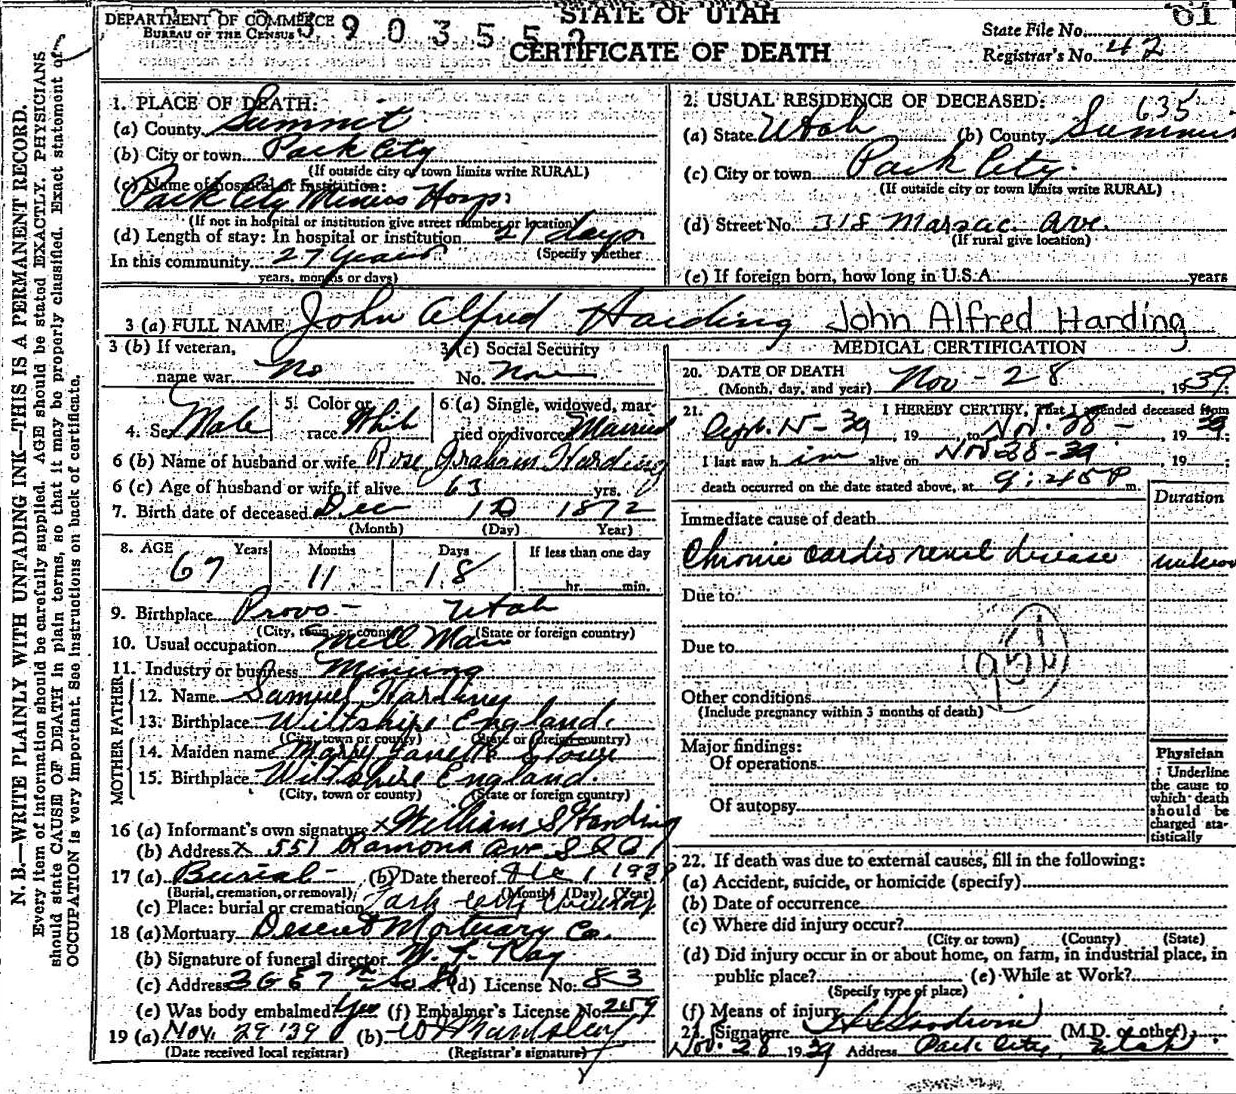 61
DEPARTMENT OF COMMERCE
BUREAU OF THE CENSUS
STATE OF UTAH
CERTIFICATE OF DEATH
State File No.
Registrar's No. 42
N. B.—WRITE PLAINLY WITH UNFADING INK—THIS IS A PERMANENT RECORD.
Every item of information should be carefully supplied. AGE should be stated EXACTLY. PHYSICIANS
should state CAUSE OF DEATH in plain terms, so that it may be properly classified. Exact statement of
OCCUPATION is very important. See instructions on back of certificate.
1. PLACE OF DEATH:
(a) County Summit
(b) City or town Park City
(If outside city or town limits write RURAL)
(c) Name of hospital or institution:
Park City Miners Hosp.
(If not in hospital or institution give street number or location)
(d) Length of stay: In hospital or institution days
(Specify whether
In this community 27 Years
years, months or days)
2. USUAL RESIDENCE OF DECEASED:
635
(a) State Utah (b) County Summit
(c) City or town Park City.
(If outside city or town limits write RURAL)
(d) Street No. 318 Marsac. Ave.
(If rural give location)
(e) If foreign born, how long in U.S.A. years
3 (a) FULL NAME John Alfred Harding John Alfred Harding
3 (b) If veteran,
name war No
3 (c) Social Security
No. None
4. Sex Male
5. Color or
race White
6 (a) Single, widowed, mar-
ried or divorced Married
6 (b) Name of husband or wife Rose Graham Harding
6 (c) Age of husband or wife if alive 63 yrs.
7. Birth date of deceased Dec 10 1872
(Month) (Day) Year)
8. AGE Years Months Days If less than one day
67 11 18 hr. min.
9. Birthplace Provo - Utah
(City, town, or county) (State or foreign country)
10. Usual occupation Mill Man
11. Industry or business Mining
FATHER
12. Name Samuel Harding
13. Birthplace Wiltshire England.
(City, town or county) (State or foreign country)
MOTHER
14. Maiden name Janette
15. Birthplace Wiltshire England.
(City, town or county) (State or foreign country)
16 (a) Informant's own signature x William S Harding
(b) Address x 551 Ramona Ave
17 (a) Burial - (b) Date thereof Dec 1 1939
(Burial, cremation, or removal) (Month) (Day) (Year)
(c) Place: burial or cremation Park City
18 (a) Mortuary Deseret Mortuary Co.
(b) Signature of funeral director
(c) Address (d) License No. 83
(e) Was body embalmed? Yes (f) Embalmer's License No. 259
19 (a) Nov. 29 '39 (b)
(Date received local registrar) (Registrar's signature)
MEDICAL CERTIFICATION
20. DATE OF DEATH
(Month, day, and year) Nov - 28 1939.
21. I HEREBY CERTIFY, That I attended deceased from
Sept. 15 - 39, 19 to Nov. 28 - , 19 39.
I last saw him alive on Nov 28 - 39, 19 ;
death occurred on the date stated above, at 9:45 P m.
Duration
Immediate cause of death
Chronic cardio renal disease
Due to
Due to
Other conditions
(Include pregnancy within 3 months of death)
Major findings:
Of operations
Of autopsy
Physician
Underline
the cause to
which death
should be
charged sta-
tistically
22. If death was due to external causes, fill in the following:
(a) Accident, suicide, or homicide (specify)
(b) Date of occurrence
(c) Where did injury occur?
(City or town) (County) (State)
(d) Did injury occur in or about home, on farm, in industrial place, in
public place? (e) While at Work?
(Specify type of place)
(f) Means of injury
23. Signature (M.D. or other)
Nov. 28 1939 Address Park City, Utah